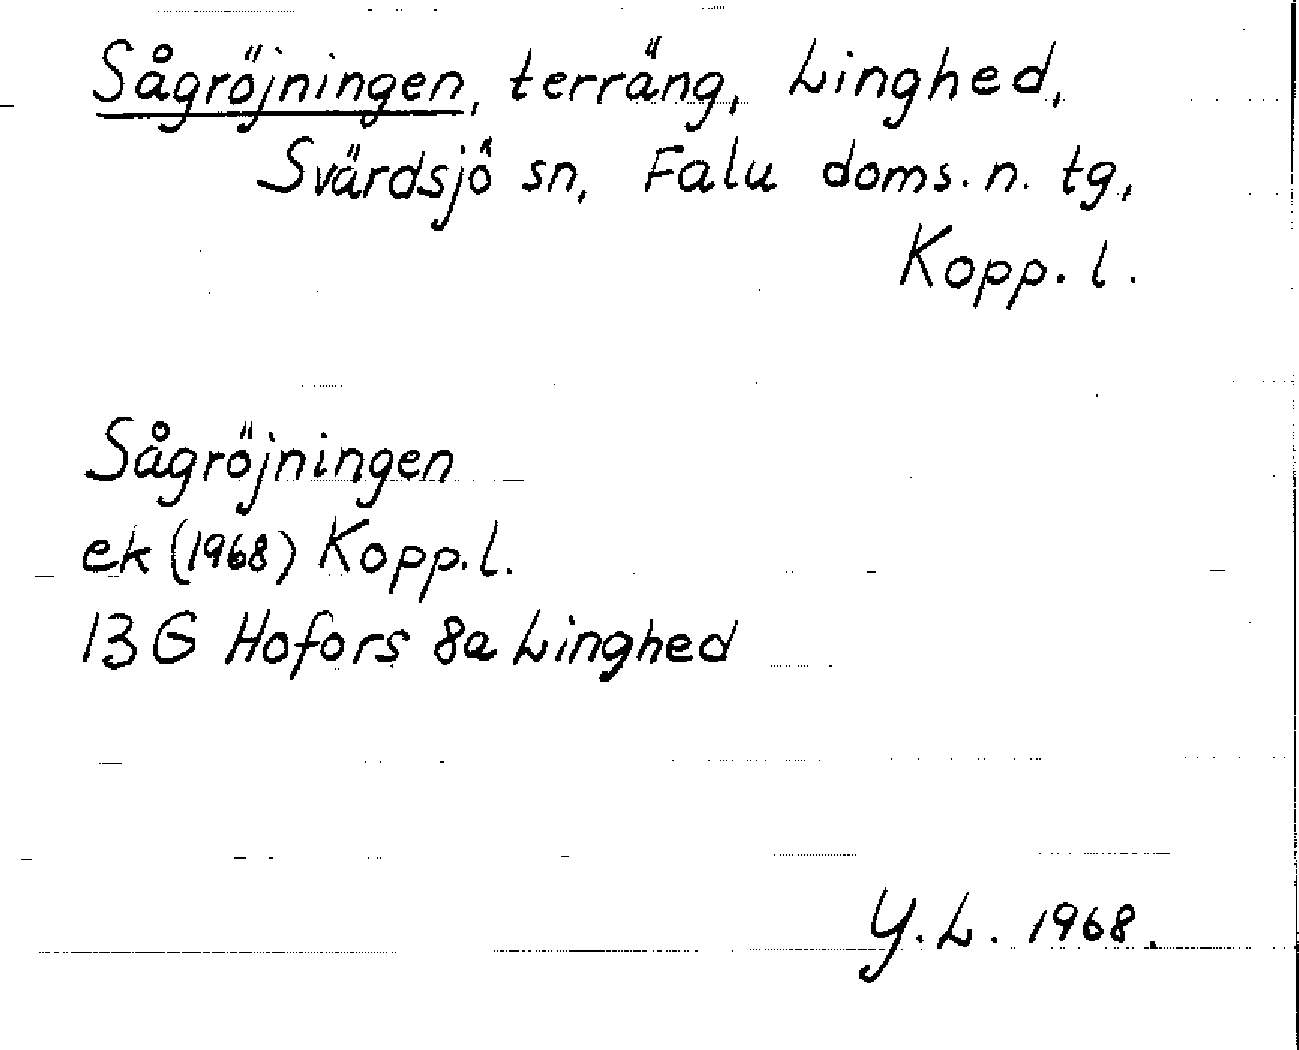 Sågröjningen, terräng, Linghed,
Svärdsjö sn, Falu doms. n. tg,
Kopp. l.
Sågröjningen
ek (1968) Kopp. l.
13 G Hofors 8a Linghed
Y. L. 1968.